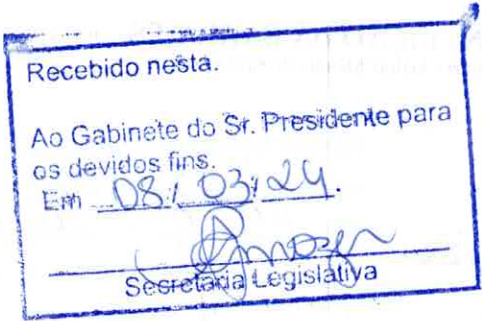 Recebido nesta.
Ao Gabinete do Sr. Presidente para
os devidos fins.
Em 08/ 03/ 24.
Secretaria Legislativa